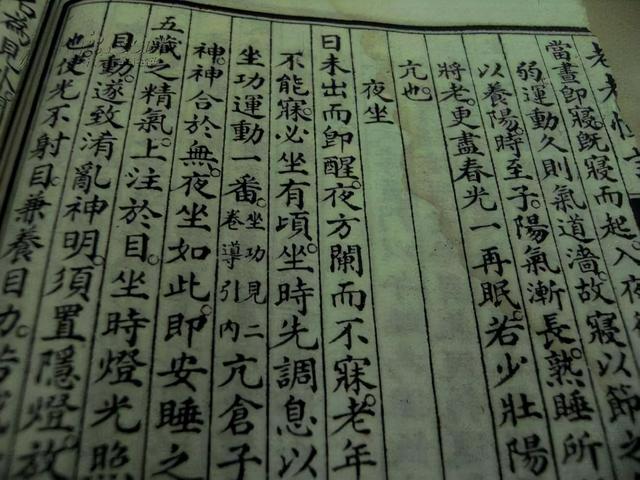 老老恒
當晝即寢。既寢而起。入夜
弱。運動久則氣道濇。故寢以節之
以養陽。時至子。陽氣漸長。熟睡所
將老。更盡春光一再眠。若少壯陽
亢也。
夜坐
日未出而即醒。夜方闌而不寐。老年
不能寐。必坐有頃。坐時先調息以
坐功運動一番。坐功見二卷導引內亢倉子
神。神合於無。夜坐如此。即安睡之
五藏之精氣。上注於目。坐時燈光照
目動。遂致淆亂神明。須置隱燈。放
也。使光不射目。兼養目力。若